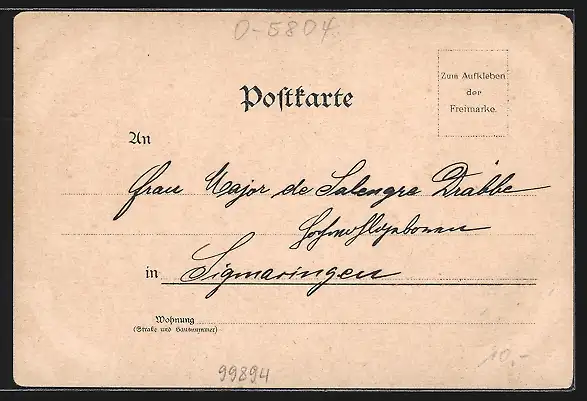 O-5804
Zum Aufkleben
der
Freimarke.
Postkarte
An
Frau Major de Salengre Drabbe
Hochwohlgeboren
in Sigmaringen
Wohnung
(Straße und Hausnummer)
99894
10,-